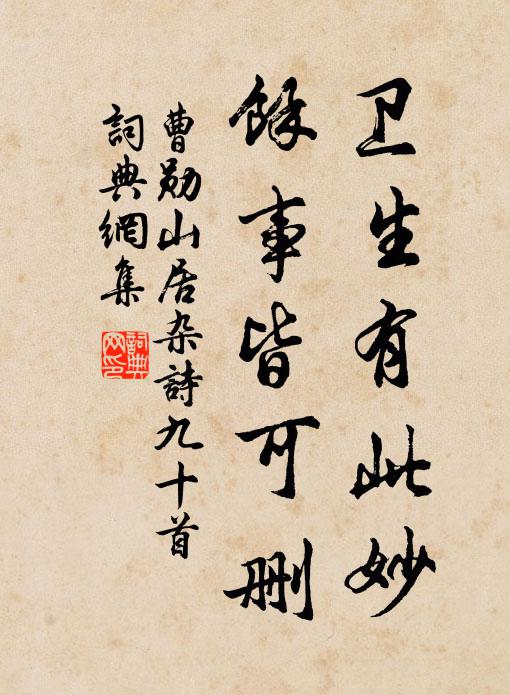 卫生有此妙
餘事皆可删
曹勋山居杂詩九十首
詞典網集
詞典网印